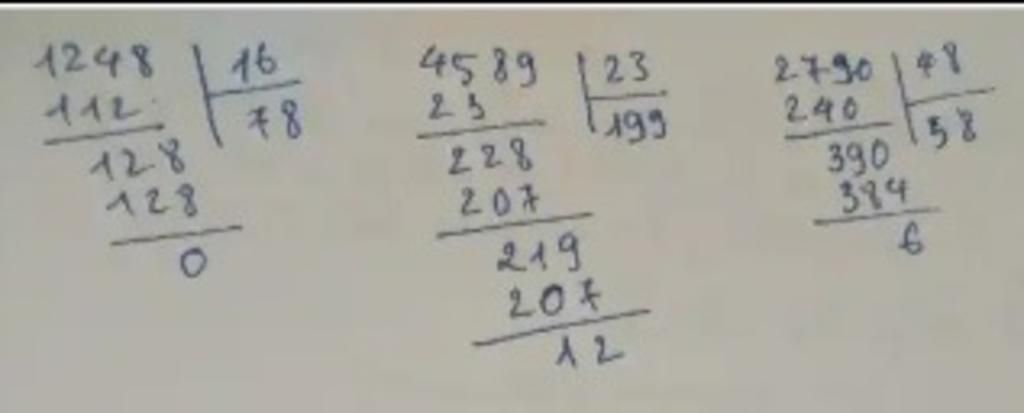 1248 16
112 78
128
128
0
4589 23
23 199
228
207
219
207
12
2790 48
240 58
390
384
6